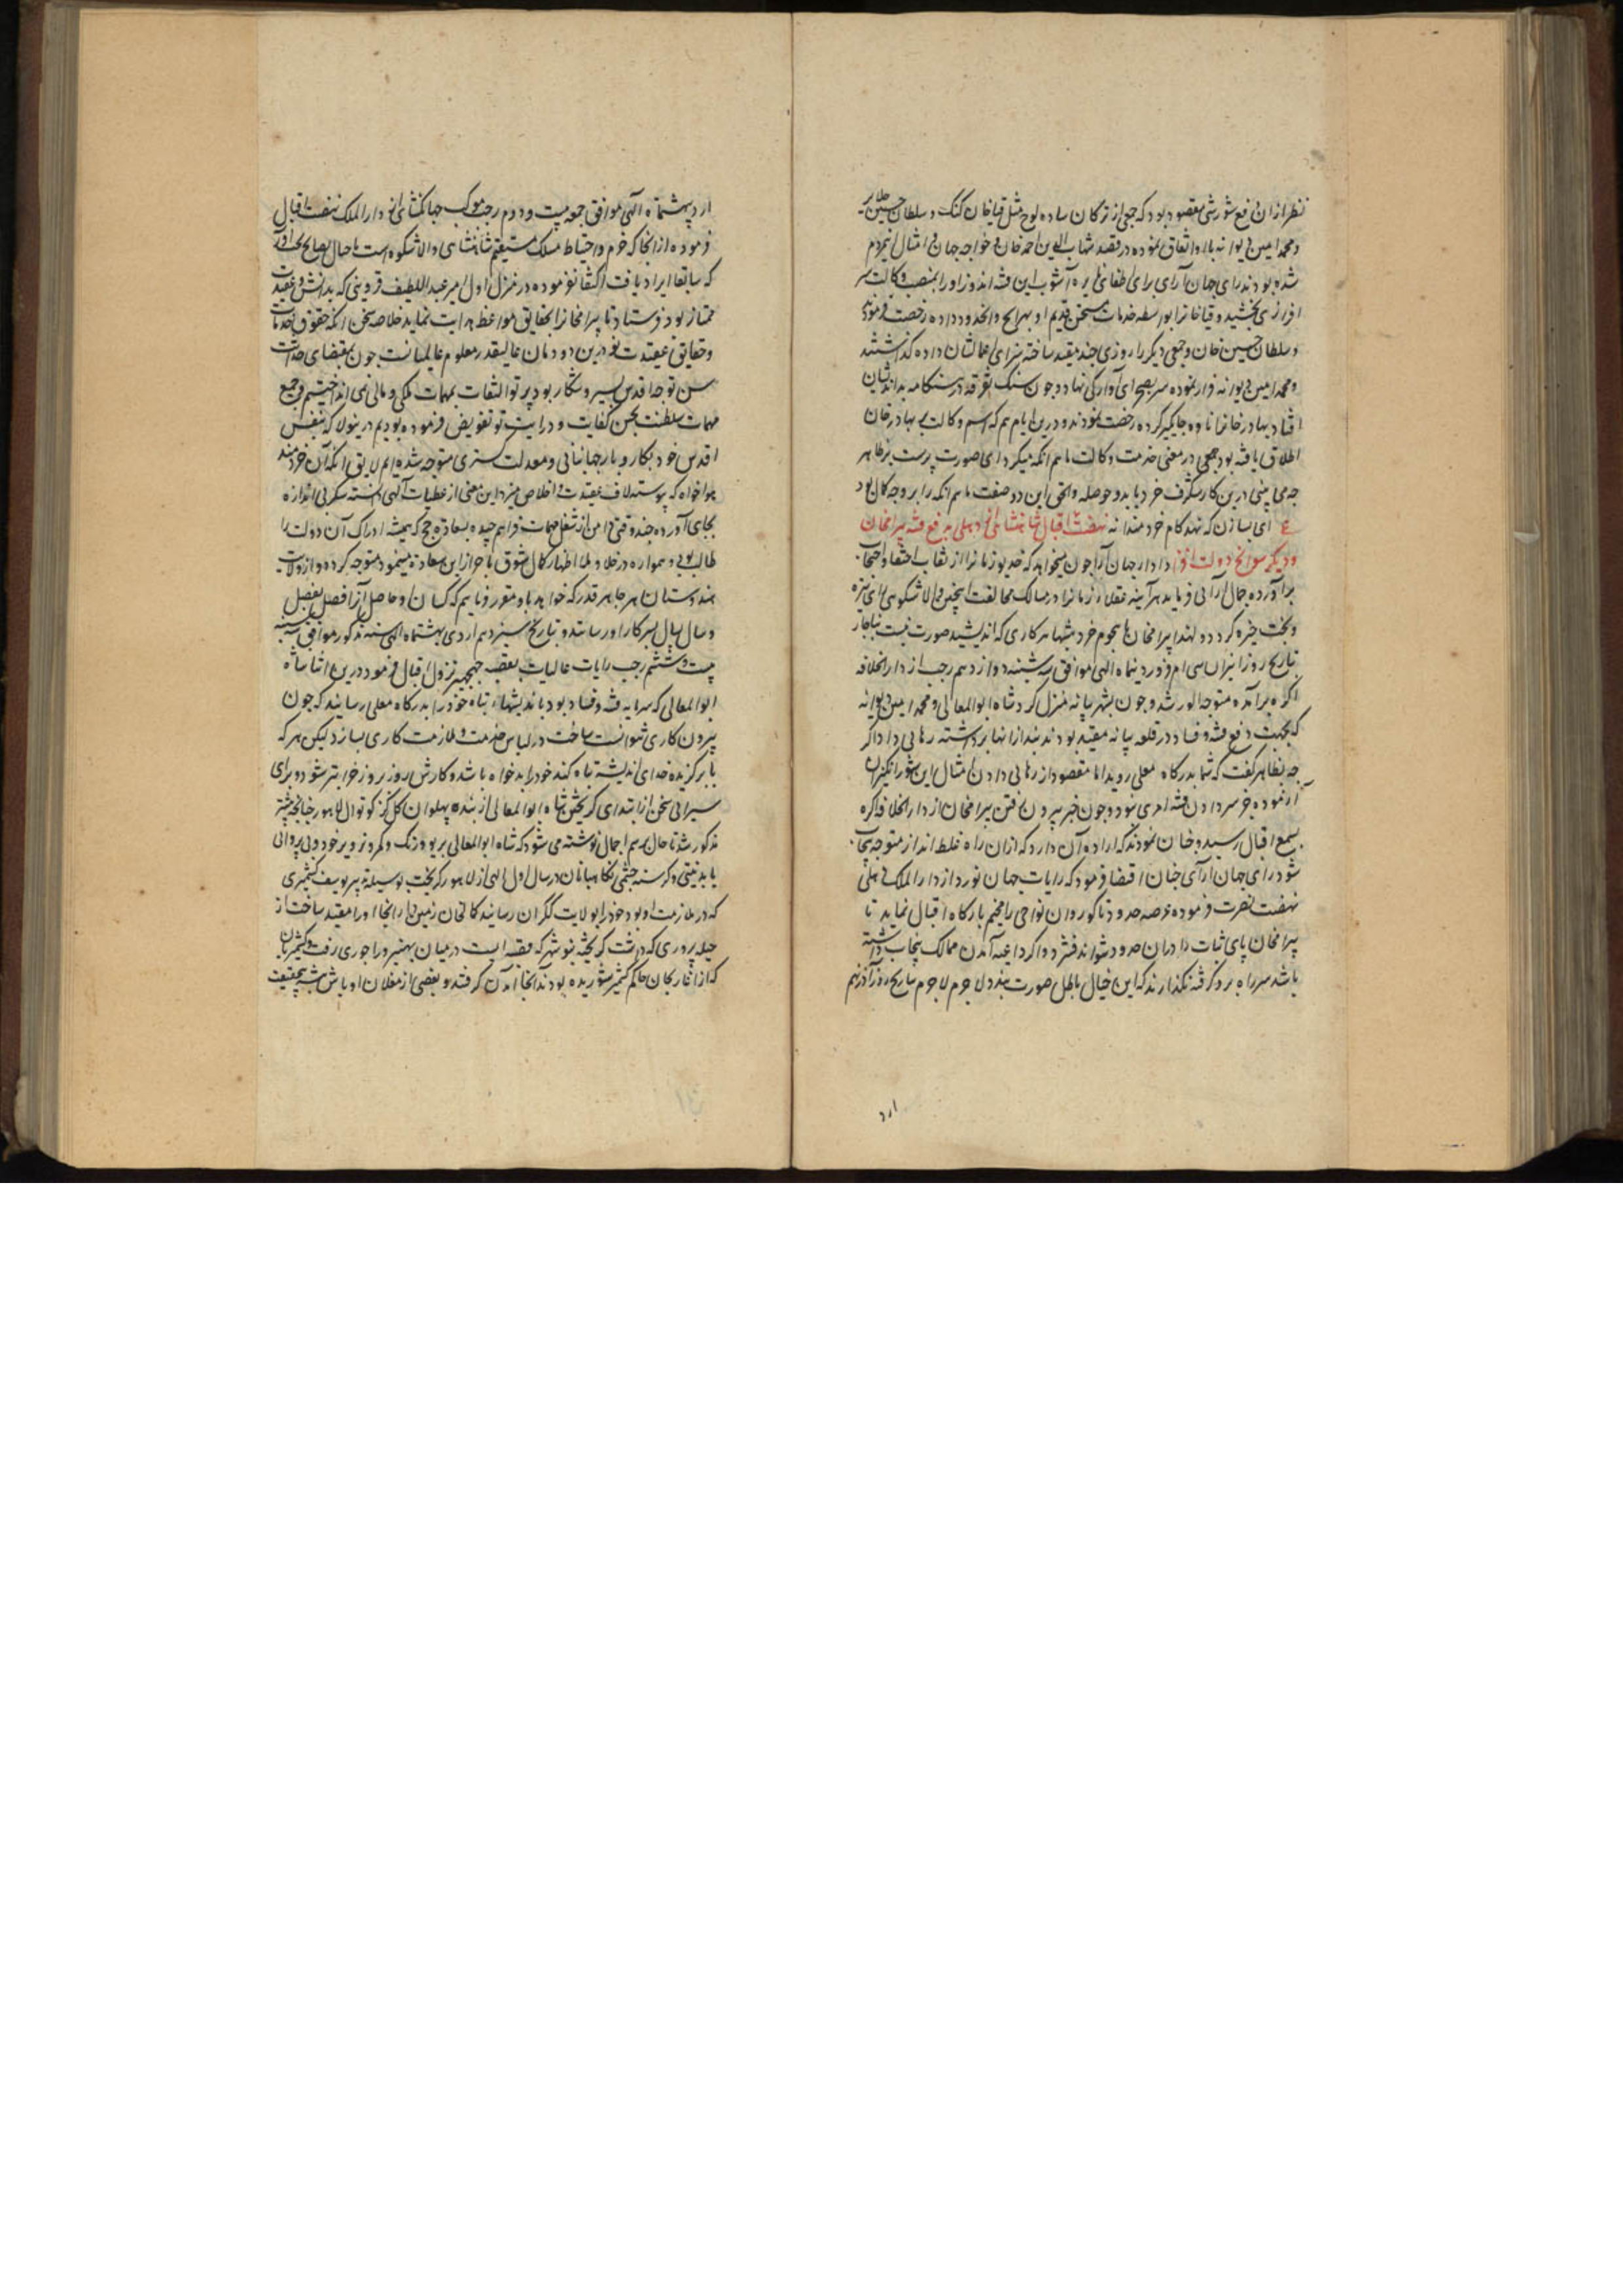 نظر ازان دفع شورشی مقصود بود که جمعی از ترکان ساده لوح مثل قیاخان کنک و سلطان حسین جلایر
و محمد امین دیوانه باو اتفاق نموده در قصد شهاب الدین احمد خان و خواجه جهان و امثال این مردم
شده بودند رای جهان آرای برای اطفای نایره آشوب این فتنه اندوز او را بمنصب وکالت سر
افرازی بخشید و قیاخانرا بواسطه خدمات قدیم او بهرایج و انحدود داده رخصت فرمودند
و سلطان حسین خان و جمعی دیکر را روزی چند مقید ساخته سزای اعمالشان داده کذاشتند
و محمد امین دیوانه فرار نموده سر بصحرای آوارکی نهاد و چون سنک تفرقه در هنکامه بداندیشان
افتاد بهادر خانرا اتاوه جایکیر کرده رخصت نمودند و درین ایام هم که اسم وکالت بر بهادر خان
اطلاق یافته بود بحسب معنی خدمت وکالت ماهم انکه میکرد ای صورت پرست بر ظاهر
چه می بینی درین کار شکرف خرد باید و حوصله و الحق این دو صفت ماهم انکه را بر وجه کمال بود
ع ای بسا زن که نهد کام خردمندانه نهضت اقبال شاهنشاهی از دهلی بدفع فتنه بیرامخان
و دیکر سوانح دولت افزا دادار جهان آرا چون میخواهد که خدیو زمانرا از نقاب اختفا و احتجاب
برآورده جمال آرائی فرماید هرآینه عقلای زمانرا در مسالک مخالفت اینچنین والا شکوهی رای تیره
و بخت خیره کردد و لهذا بیرامخان با هجوم خرد منشها هر کاری که اندیشید صورت نبست ناچار
بتاریخ روز انیران سی ام فروردینماه الهی موافق سه شنبه دوازدهم رجب از دار الخلافه
اکره برآمده متوجه الور شد و چون بشهر بیانه منزل کرد شاه ابوالمعالی و محمد امین دیوانه
که بجهت دفع فتنه و فساد در قلعه بیانه مقید بودند بند از انها برداشته رهائی داد اکر
چه بظاهر کفت که شما بدرکاه معلی روید اما مقصود از رهائی دادن امثال این شور انکیزان
آزموده جز سر دادن فتنه امری نبود و چون خبر بیرون رفتن بیرامخان از دار الخلافه اکره
بسمع اقبال رسید و چنان نمودند که اراده آن دارد که ازان راه غلط انداز متوجه پنجاب
شود رای جهان آرای چنان اقتضا فرمود که رایات جهان نورد از دار الملک دهلی
نهضت نصرت فرموده عرصه حدود ناکور و ان نواحی را مخیم بارکاه اقبال نماید تا
بیرامخان پای ثبات در ان حدود نتواند فشرد و اکر داعیه آمدن ممالک پنجاب داشته
باشد سر راه برو کرفته نکذارند که این خیال باطل صورت بندد لا جرم بتاریخ روز آذر نهم
ارد
اردیبهشتماه الهی موافق جمعه بیست و دوم رجب موکب جهانکشای از دار الملک نهضت اقبال
فرموده ازانجا که حزم و احتیاط مسلک مستقیم شاهنشاهی والا شکوه است با حال نصایح
که سابقا ایراد یافت اکتفا نفرموده در منزل اول میر عبد اللطیف قزوینی که بدانش و عقیدت
ممتاز بود فرستاد تا بیرامخانرا بحقایق مواعظ هدایت نماید خلاصه سخن انکه حقوق خدمات
و حقایق عقیدت تو درین دودمان عالیقدر معلوم عالمیانست چون بمقتضای حداثت
سن توجه اقدس بسیر و شکار بود پرتو التفات بمهمات ملکی و مالی نمی انداختیم و جمیع
مهمات سلطنت بحسن کفایت و درایت تو تفویض فرموده بودیم درینولا که بنفس
اقدس خود بکار و بار جهانبانی و معدلت کستری متوجه شده ایم لایق انکه آن خردمند
هواخواه که پیوسته لاف عقیدت و اخلاص میزد این معنی از عطیات الهی دانسته شکر بی اندازه
بجای آورده چند وقتی دامن از شغل مهمات فراهم چیده بسعادت حج که همیشه ادراک آن دولت را
طالب بودی و همواره در خلا و ملا اظهار کمال شوق باحراز این سعادت مینمود متوجه کردد و از ولایت
هندوستان هر جا هر قدر که خواهد باو مقرر فرمایم که کسان او حاصل آنرا فصل بفصل
و سال بسال بسرکار او رسانند و بتاریخ سیزدهم اردیبهشتماه الهی سنه مذکور موافق سه شنبه
بیست و ششم رجب رایات عالیات بقصبه جهجهر نزول اقبال فرمود درین اثنا شاه
ابوالمعالی که سرمایه فتنه و فساد بود باندیشهای تباه خود را بدرکاه معلی رسانید که چون
بیرون کاری نتوانست ساخت در لباس خدمت و ملازمت کاری بسازد لیکن هر که
با برکزیده خدای اندیشه تباه کند خود را بدخواه باشد و کارش روز بروز خرابتر شود و برای
سیرابی سخن از ابتدای کریختن شاه ابوالمعالی از بند پهلوان کل کز کوتوال لاهور چنانچه پیشتر
مذکور شد تا حال برسم اجمال نوشته می شود که شاه ابوالمعالی بریو و رنک و مکر و تزویر خود و بی پروائی
یا بدنیتی و کرسنه چشمی نکاهبانان در سال اول الهی از لاهور کریخت بوسیله پیر یوسف کشمیری
که در ملازمت او بود خود را بولایت ککران رسانید کمال خان زمین دار انجا او را مقید ساخت از
حیله پروری که داشت کریخته بنوشهر که قصبه ایست در میان بهنبر و راجوری رفت و کشمیریان
که از غازیخان حاکم کشمیر شوریده بودند انجا آمدن کرفتند و بعضی از مغلان اوباش